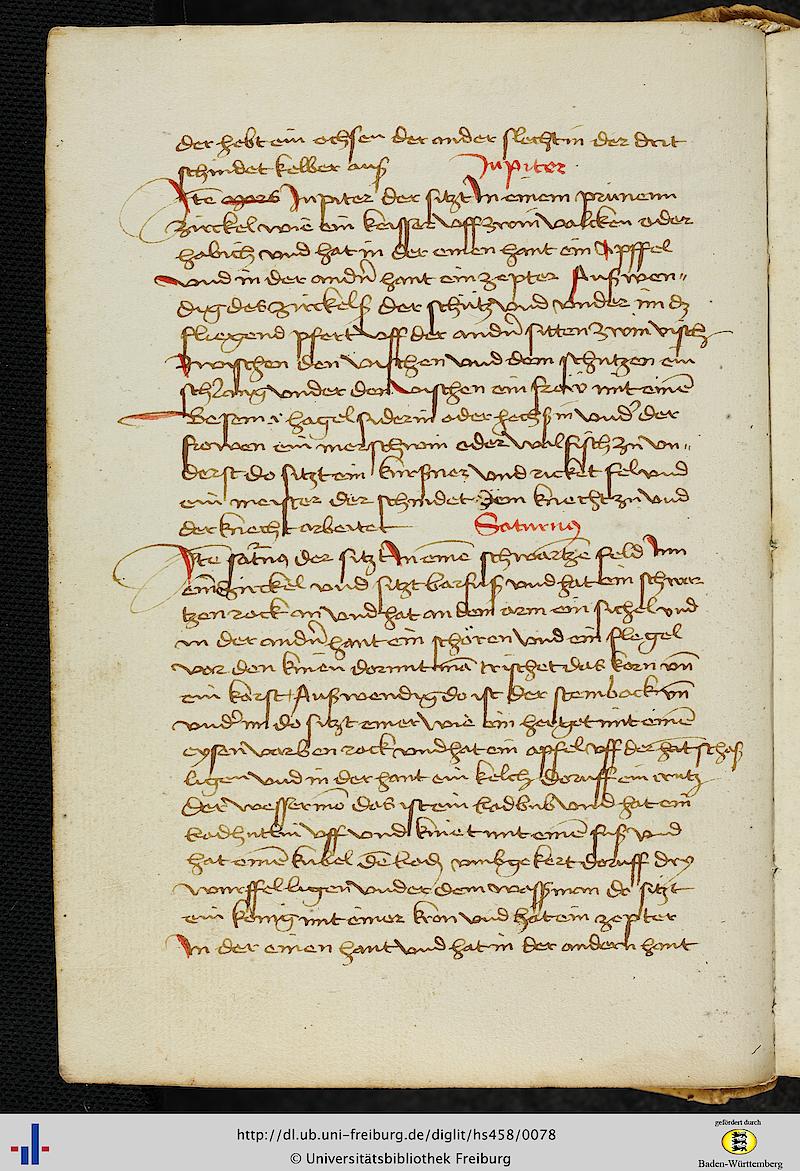 der hebt ein ochsen der ander slecht in der drit
schindet kelber auß Jupiter
Ite mars Jupiter der sitzt In einem prünenn
zirckel wie ein keisser vff zwin valcken oder
habich vnd hat in der einen hant ein Apffel
vnd in der andn hant ein zepter Außwen„
dig des zirckelß der schütz vnd vnder im dz
fliegend pfert vff der andn sitten zwin visch
zwischen den vischen vnd dem schützen ein
schlang vnder den vischen ein frow mit eine
Besem hagelsiderin oder hechsin vnd der
frowen ein merschwin oder walfisch zu vn„
derst do sitzt ein kürßner vnd ricket fel vnd
ein meister der schindet dem knecht zu vnd
der knecht arbeitet Saturnus
Ite satnus der sitzt In eine schwartze feld Inn
eine zirckel vnd sitzt barfuß vnd hat ein schwar
tzen rock an vnd hat an dem arm ein sichel vnd
in der andn hant ein schoren vnd ein flegel
vor den knien do mit ma trischet das korn vn
ein karst Außwendig do ist der steinbock vn
vnd im do sitzt einer wie ein heiget mit eine
eysen varben rock vnd hat ein apfel vff der hat
ligen vnd in der hant ein kelch doruff ein crutz
der wesserma das ist ein badbub vnd hat ein
badhutlin vff vnd kniet mit eine fuß vnd
hat eine kubel vmbgekert doruff dry
wurffel ligen vnder dem wasserman do sitzt
ein konig mit einer kron vnd hat ein zepter
In der einen hant vnd hat in der andern hant
http://dl.ub.uni-freiburg.de/diglit/hs458/0078
© Universitätsbibliothek Freiburg
gefördert durch
Baden-Württemberg